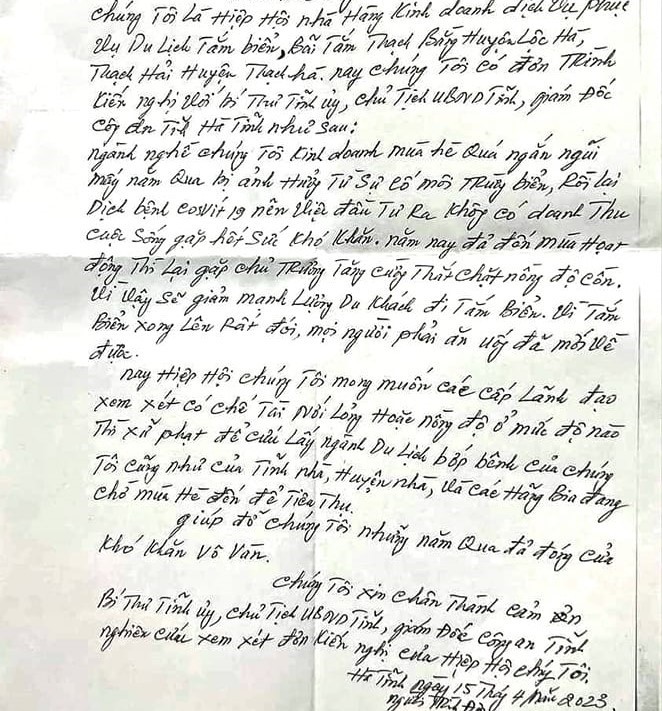 chúng Tôi Là Hiệp Hội nhà Hàng Kinh doanh dịch Vụ phục
Vụ Du Lịch Tắm biển, Bãi Tắm Thạch Bằng Huyện Lôc Hà,
Thạch Hải Huyện Thạch hà. nay chúng Tôi có đơn Trình
Kiến nghị Với bí Thư Tỉnh ủy, chủ Tịch UBND Tỉnh, giám Đốc
Công an Tỉnh Hà Tĩnh như sau:
ngành nghề chúng Tôi Kinh doanh mùa hè Quá ngắn ngủi
mấy năm Qua bị ảnh Hưởng Từ Sự cố môi Trường biển, Rồi lại
Dịch bệnh Cosvit 19 nên Việc đầu Tư Ra Không có doanh Thu
cuộc Sống gặp hết Sức Khó Khăn. năm nay đã đến mùa Hoạt
động Thì Lại gặp chủ Trương Tăng cường Thắt chặt nồng độ cồn.
Vì Vậy Sẽ giảm mạnh Lượng Du Khách đi Tắm Biển. Vì Tắm
Biển xong Lên Rất đói, mọi người phải ăn uống đã mới Về
được.
nay Hiệp Hội chúng Tôi mong muốn các cấp Lãnh đạo
xem xét có chế Tài Nới Lỏng Hoặc nồng độ ở mức độ nào
Thì xử phạt để cứu Lấy ngành Du Lịch bấp bênh của chúng
Tôi cũng như của Tỉnh nhà, Huyện nhà, Và các Hãng Bia đang
chờ mùa Hè đến để Tiêu Thụ.
giúp đỡ chúng Tôi những năm Qua đã đóng cửa
Khó Khăn Vô Vàn.
chúng Tôi xin Chân Thành cảm ơn
Bí Thư Tỉnh ủy, chủ Tịch UBND Tỉnh, giám Đốc Công an Tỉnh
nghiên cứu xem xét đơn Kiến nghị của Hiệp Hội chúng Tôi.
Hà Tĩnh ngày 15 Tháng 4 Năm 2023.
người